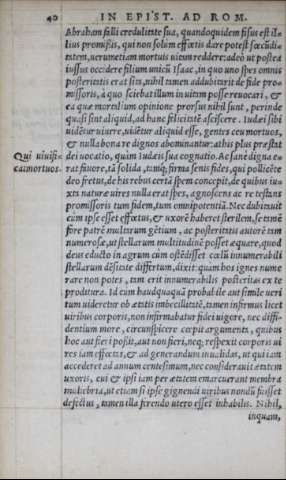 40 IN EPIST. AD ROM.
Abraham falli credulitate sua, quandoquidem fisus est il-
lius promissis, qui non solum effœtis dare potest fœcūdi-
tatem, uerumetiam mortuis uitam reddere: adeò ut postea
iussus occidere filium unicū Isaac, in quo uno spes omnis
posteritatis erat sita, nihil tamen addubitarit de fide pro-
missoris, à quo sciebat illum in uitam posse reuocari, &
ea quæ mortalium opinione prorsus nihil sunt, perinde
quasi sint aliquid, ad hanc felicitatē asciscere. Iudæi sibi
uidētur uiuere, uidētur aliquid esse, gentes ceu mortuos,
& nulla bona re dignos abominantur: at his plus præstat
dei uocatio, quàm Iudæis sua cognatio. Ac sanè digna e-
rat fauore, tā solida, tamq; firma senis fides, qui pollicēte
deo fretus, de his rebus certā spem concepit, de quibus iu-
xta naturæ uires nulla erat spes, agnoscens ac re testans
promissoris tum fidem, tum omnipotentiā. Nec dubitauit
cùm ipse esset effœtus, & uxorē haberet sterilem, se tamē
fore patrē multarum gētium, ac posteritatis autorē tam
numerosæ, ut stellarum multitudinē posset æquare, quod
deus educto in agrum cùm ostēdisset cœlū innumerabili
stellarum dēsitate differtum, dixit: quàm hos ignes nume
rare non potes, tam erit innumerabilis posteritas ex te
proditura. Id cùm haudquaquā probabile aut simile ueri
tum uideretur ob ætatis imbecillitatē, tamen infirmus licet
uiribus corporis, non infirmabatur fidei uigore, nec diffi-
dentium more, circunspicere cœpit argumenta, quibus
hoc aut fieri possit, aut non fieri, neq; respexit corporis ui
res iam effœtas, & ad generandum inualidas, ut qui iam
accederet ad annum centesimum, nec considerauit ætatem
uxoris, cui & ipsi iam per ætatem emarcuerant membra
muliebria, ut etiam si ipse gignendi uiribus nondū fuisset
defectus, tamen illa ferendo utero esset inhabilis. Nihil,
inquam,
Qui uiuifi-
cat mortuos.